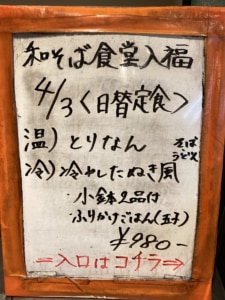 和そば食堂入福
4/3〈日替定食〉
温)とりなん
そば
うどん
冷)冷やしたぬき風
小鉢2品付
ふりかけごはん(五子)
¥980-
⇒入口はコチラ⇒